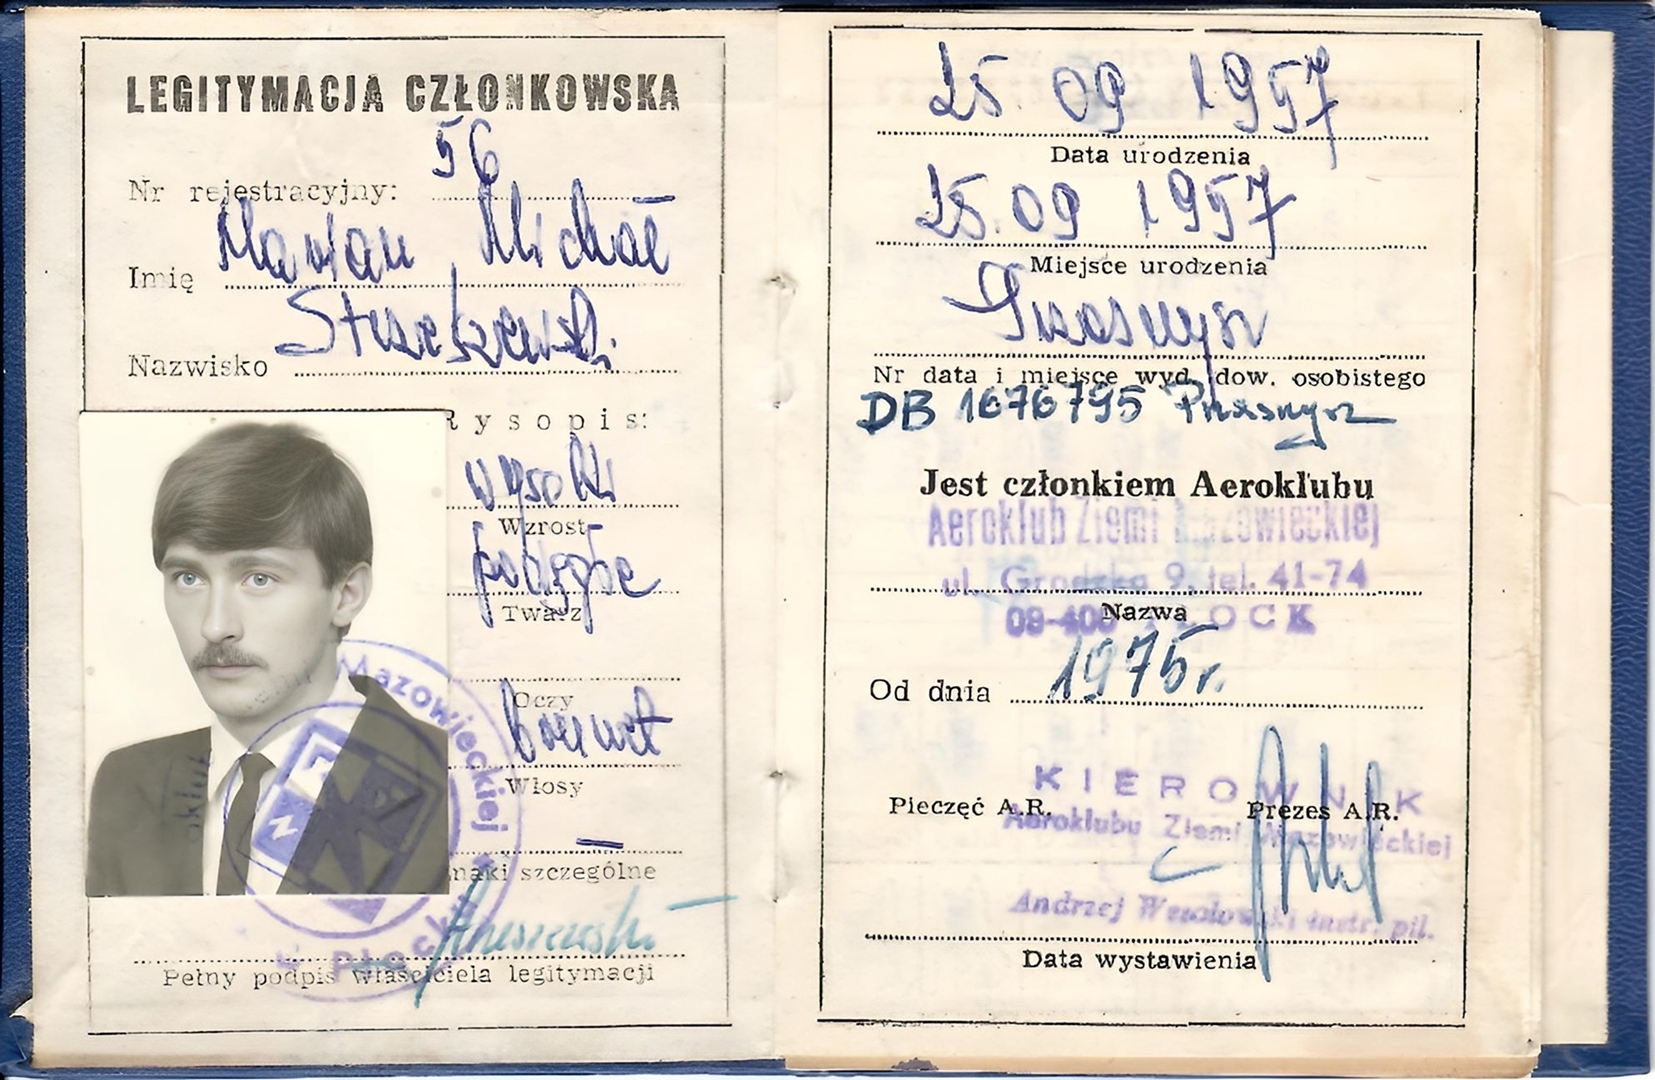 LEGITYMACJA CZŁONKOWSKA
56
Nr rejestracyjny:
Marian Michał
Imię
Nazwisko
Rysopis:
wysoki
Wzrost
pociągłe
Twarz
Oczy
Włosy
—
znaki szczególne
Pełny podpis właściciela legitymacji
Mazowieckiej
25 09 1957
Data urodzenia
25.09 1957
Miejsce urodzenia
Przasnysz
Nr data i miejsce wyd. dow. osobistego
DB 1676795 Przasnysz
Jest członkiem Aeroklubu
Aeroklub Ziemi Mazowieckiej
ul. Grodzka 9, tel. 41-74
Nazwa
09-400 PŁOCK
1975 r.
Od dnia
KIEROWNIK
Pieczęć A.R. Prezes A.R.
Aeroklubu Ziemi Mazowieckiej
Andrzej Wesołowski instr. pil.
Data wystawienia